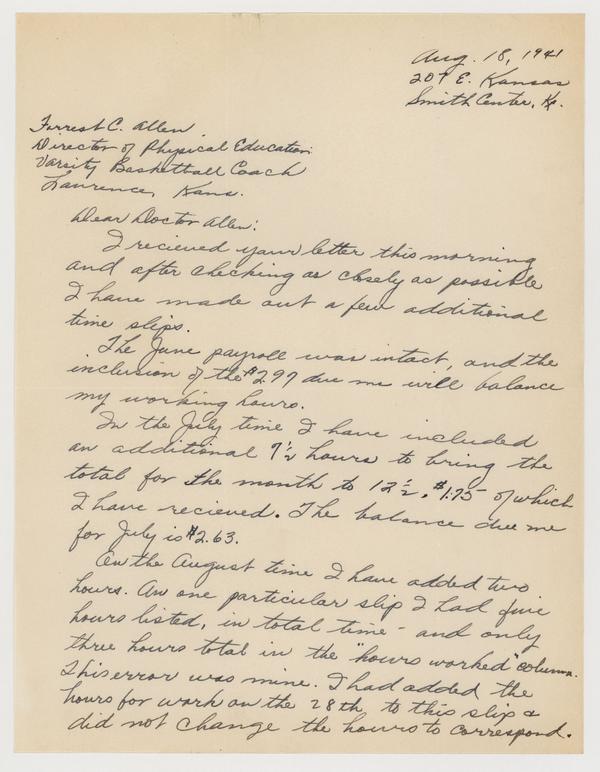 Aug. 18, 1941
207 E. Kansas
Smith Center, Ks.
Forrest C. Allen
Director of Physical Education
Varsity Basketball Coach
Lawrence, Kans.
Dear Doctor Allen:
I recieved your letter this morning
and after checking as closely as possible
I have made out a few additional
time slips.
The June payroll was intact, and the
inclusion of the $2.97 due me will balance
my working hours.
In the July time I have included
an additional 7½ hours to bring the
total for the month to 12½, $1.75 of which
I have recieved. The balance due me
for July is $2.63.
On the August time I have added two
hours. On one particular slip I had five
hours listed, in total time - and only
three hours total in the "hours worked" column.
This error was mine. I had added the
hours for work on the 28th to this slip &
did not change the hours to correspond.